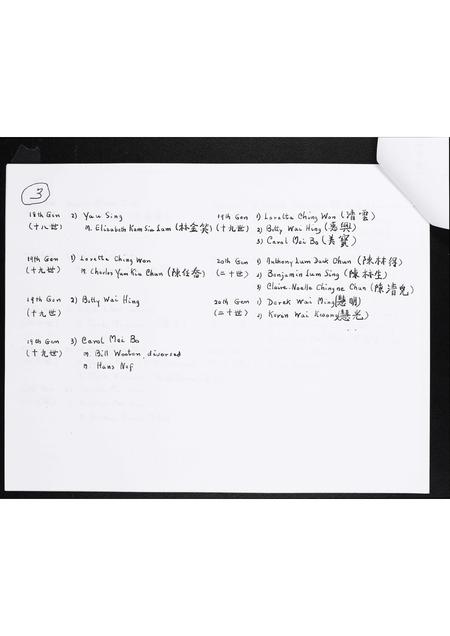 3
18th Gen 2) Yau Sing 19th Gen 1) Loretta Ching Won (清雲)
(十八世) m. Elizabeth Kam Siu Lum (林金笑) (十九世) 2) Betty Wai Hing (惠興)
3) Carol Mei Bo (美寶)
19th Gen 1) Loretta Ching Won 20th Gen 1) Anthony Lum Duk Chun (陳林得)
(十九世) m. Charles Yam Kiu Chun (陳任喬) (二十世) 2) Benjamin Lum Sing (陳林生)
3) Claire-Noelle Chingne Chun (陳清兒)
19th Gen 2) Betty Wai Hing 20th Gen 1) Derek Wai Ming (慧明)
(十九世) (二十世) 2) Karen Wai Kwong (慧光)
19th Gen 3) Carol Mei Bo
(十九世) m. Bill Wooton, divorced
m. Hans Nef